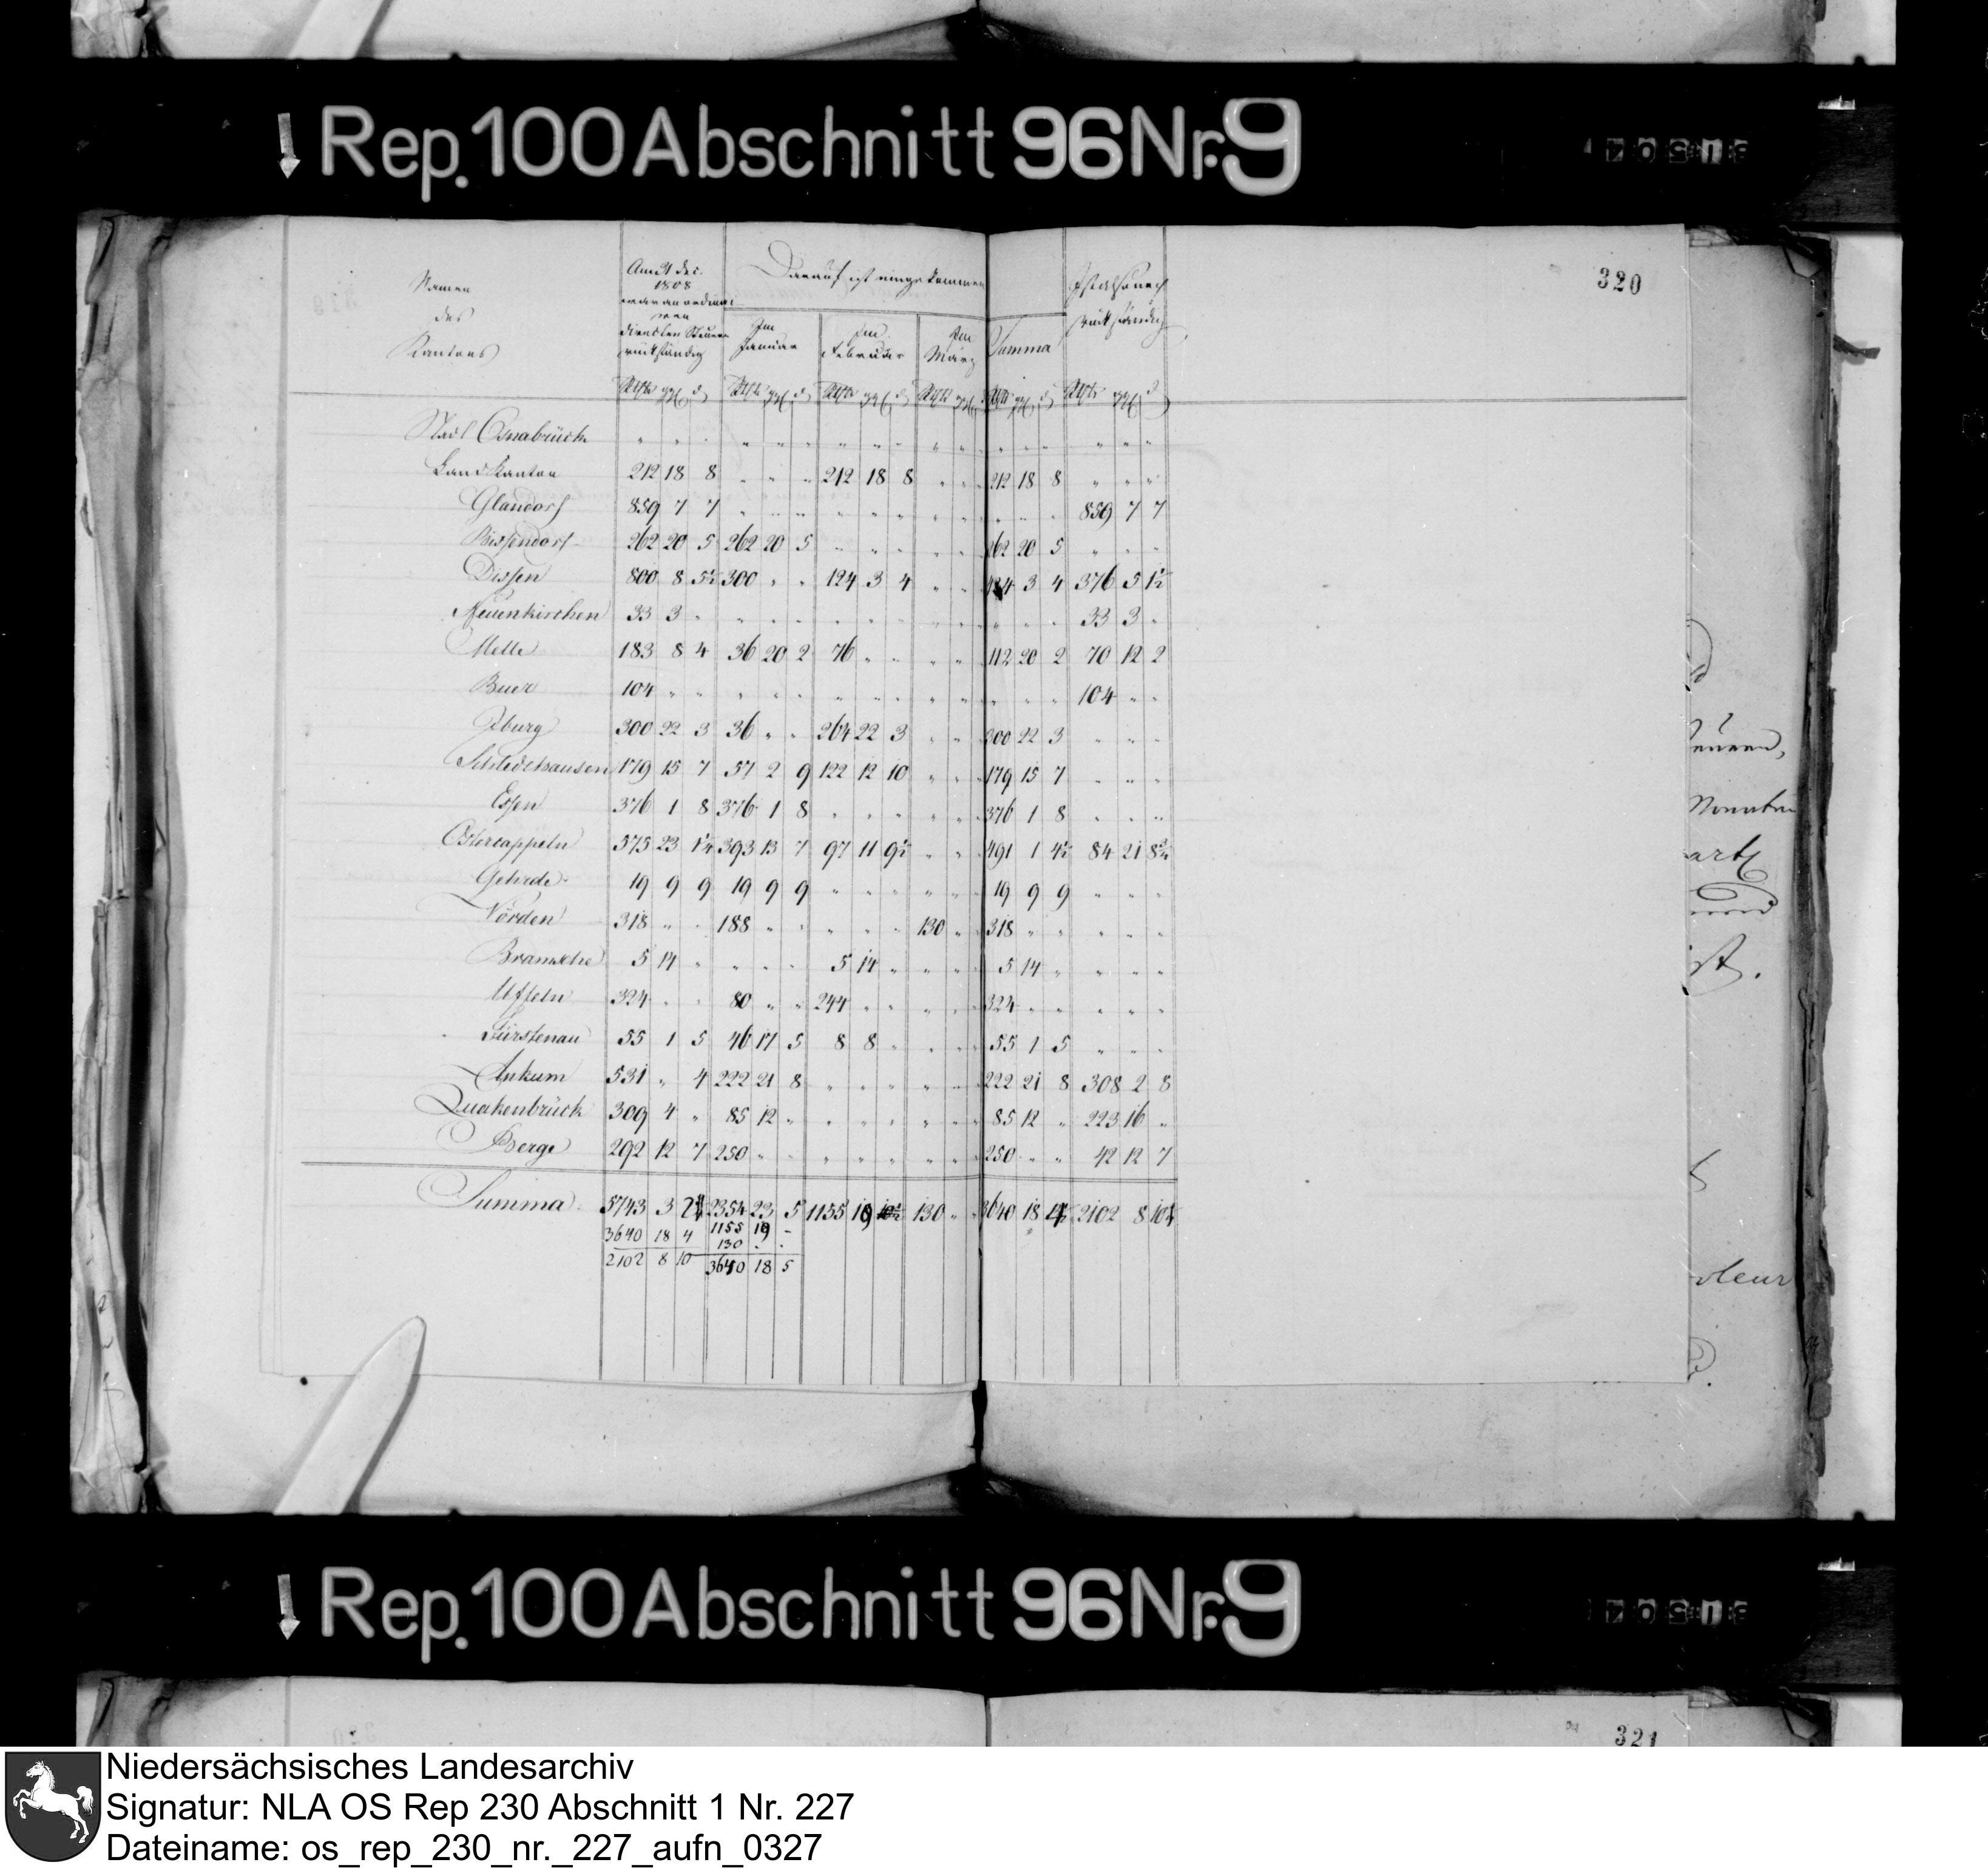 Rep. 100 Abschnitt 96 Nr. 9
320
Namen des Kantons
Am 31 Dec. 1808 war an ordinairen directen Steuern rückständig
Darauf ist eingekommen
Im Januar
Im Februar
Im März
Summa
Ist also noch rückständig
Stadt Osnabrück " " " " " " " " " " " " " " " " "
Landkanton 212 18 8 " " " 212 18 8 " " " 212 18 8 " " "
Glandorf 859 7 7 " " " " " " " " " " " " 859 7 7
Bissendorf 262 20 5 262 20 5 " " " " " " 262 20 5 " " "
Dissen 800 8 5½ 300 " " 124 3 4 " " " 424 3 4 376 5 1½
Neuenkirchen 33 3 " " " " " " " " " " " " " 33 3 "
Melle 183 8 4 36 20 2 76 " " " " " 112 20 2 70 12 2
Buer 104 " " " " " " " " " " " " " " 104 " "
Iburg 300 22 3 36 " " 264 22 3 " " " 300 22 3 " " "
Schledehausen 179 15 7 57 2 9 122 12 10 " " " 179 15 7 " " "
Essen 376 1 8 376 1 8 " " " " " " 376 1 8 " " "
Ostercappeln 575 23 1¼ 393 13 7 97 11 9½ " " " 491 1 4½ 84 21 8¾
Gehrde 19 9 9 19 9 9 " " " " " " 19 9 9 " " "
Vörden 318 " " 188 " " " " " 130 " " 318 " " " " "
Bramsche 5 14 " " " " 5 14 " " " " 5 14 " " " "
Uffeln 324 " " 80 " " 244 " " " " " 324 " " " " "
Fürstenau 55 1 5 46 17 5 8 8 " " " " 55 1 5 " " "
Ankum 531 " 4 222 21 8 " " " " " " 222 21 8 308 2 8
Quakenbrück 309 4 " 85 12 " " " " " " " 85 12 " 223 16 "
Berge 292 12 7 250 " " " " " " " " 250 " " 42 12 7
Summa 5743 3 2 2354 23 5 1155 19 130 " " 3640 18 2102 8 10
3640 18 4 1155 19 -
130 - -
2102 8 10 3640 18 5
Rep. 100 Abschnitt 96 Nr. 9
321
Niedersächsisches Landesarchiv
Signatur: NLA OS Rep 230 Abschnitt 1 Nr. 227
Dateiname: os_rep_230_nr._227_aufn_0327